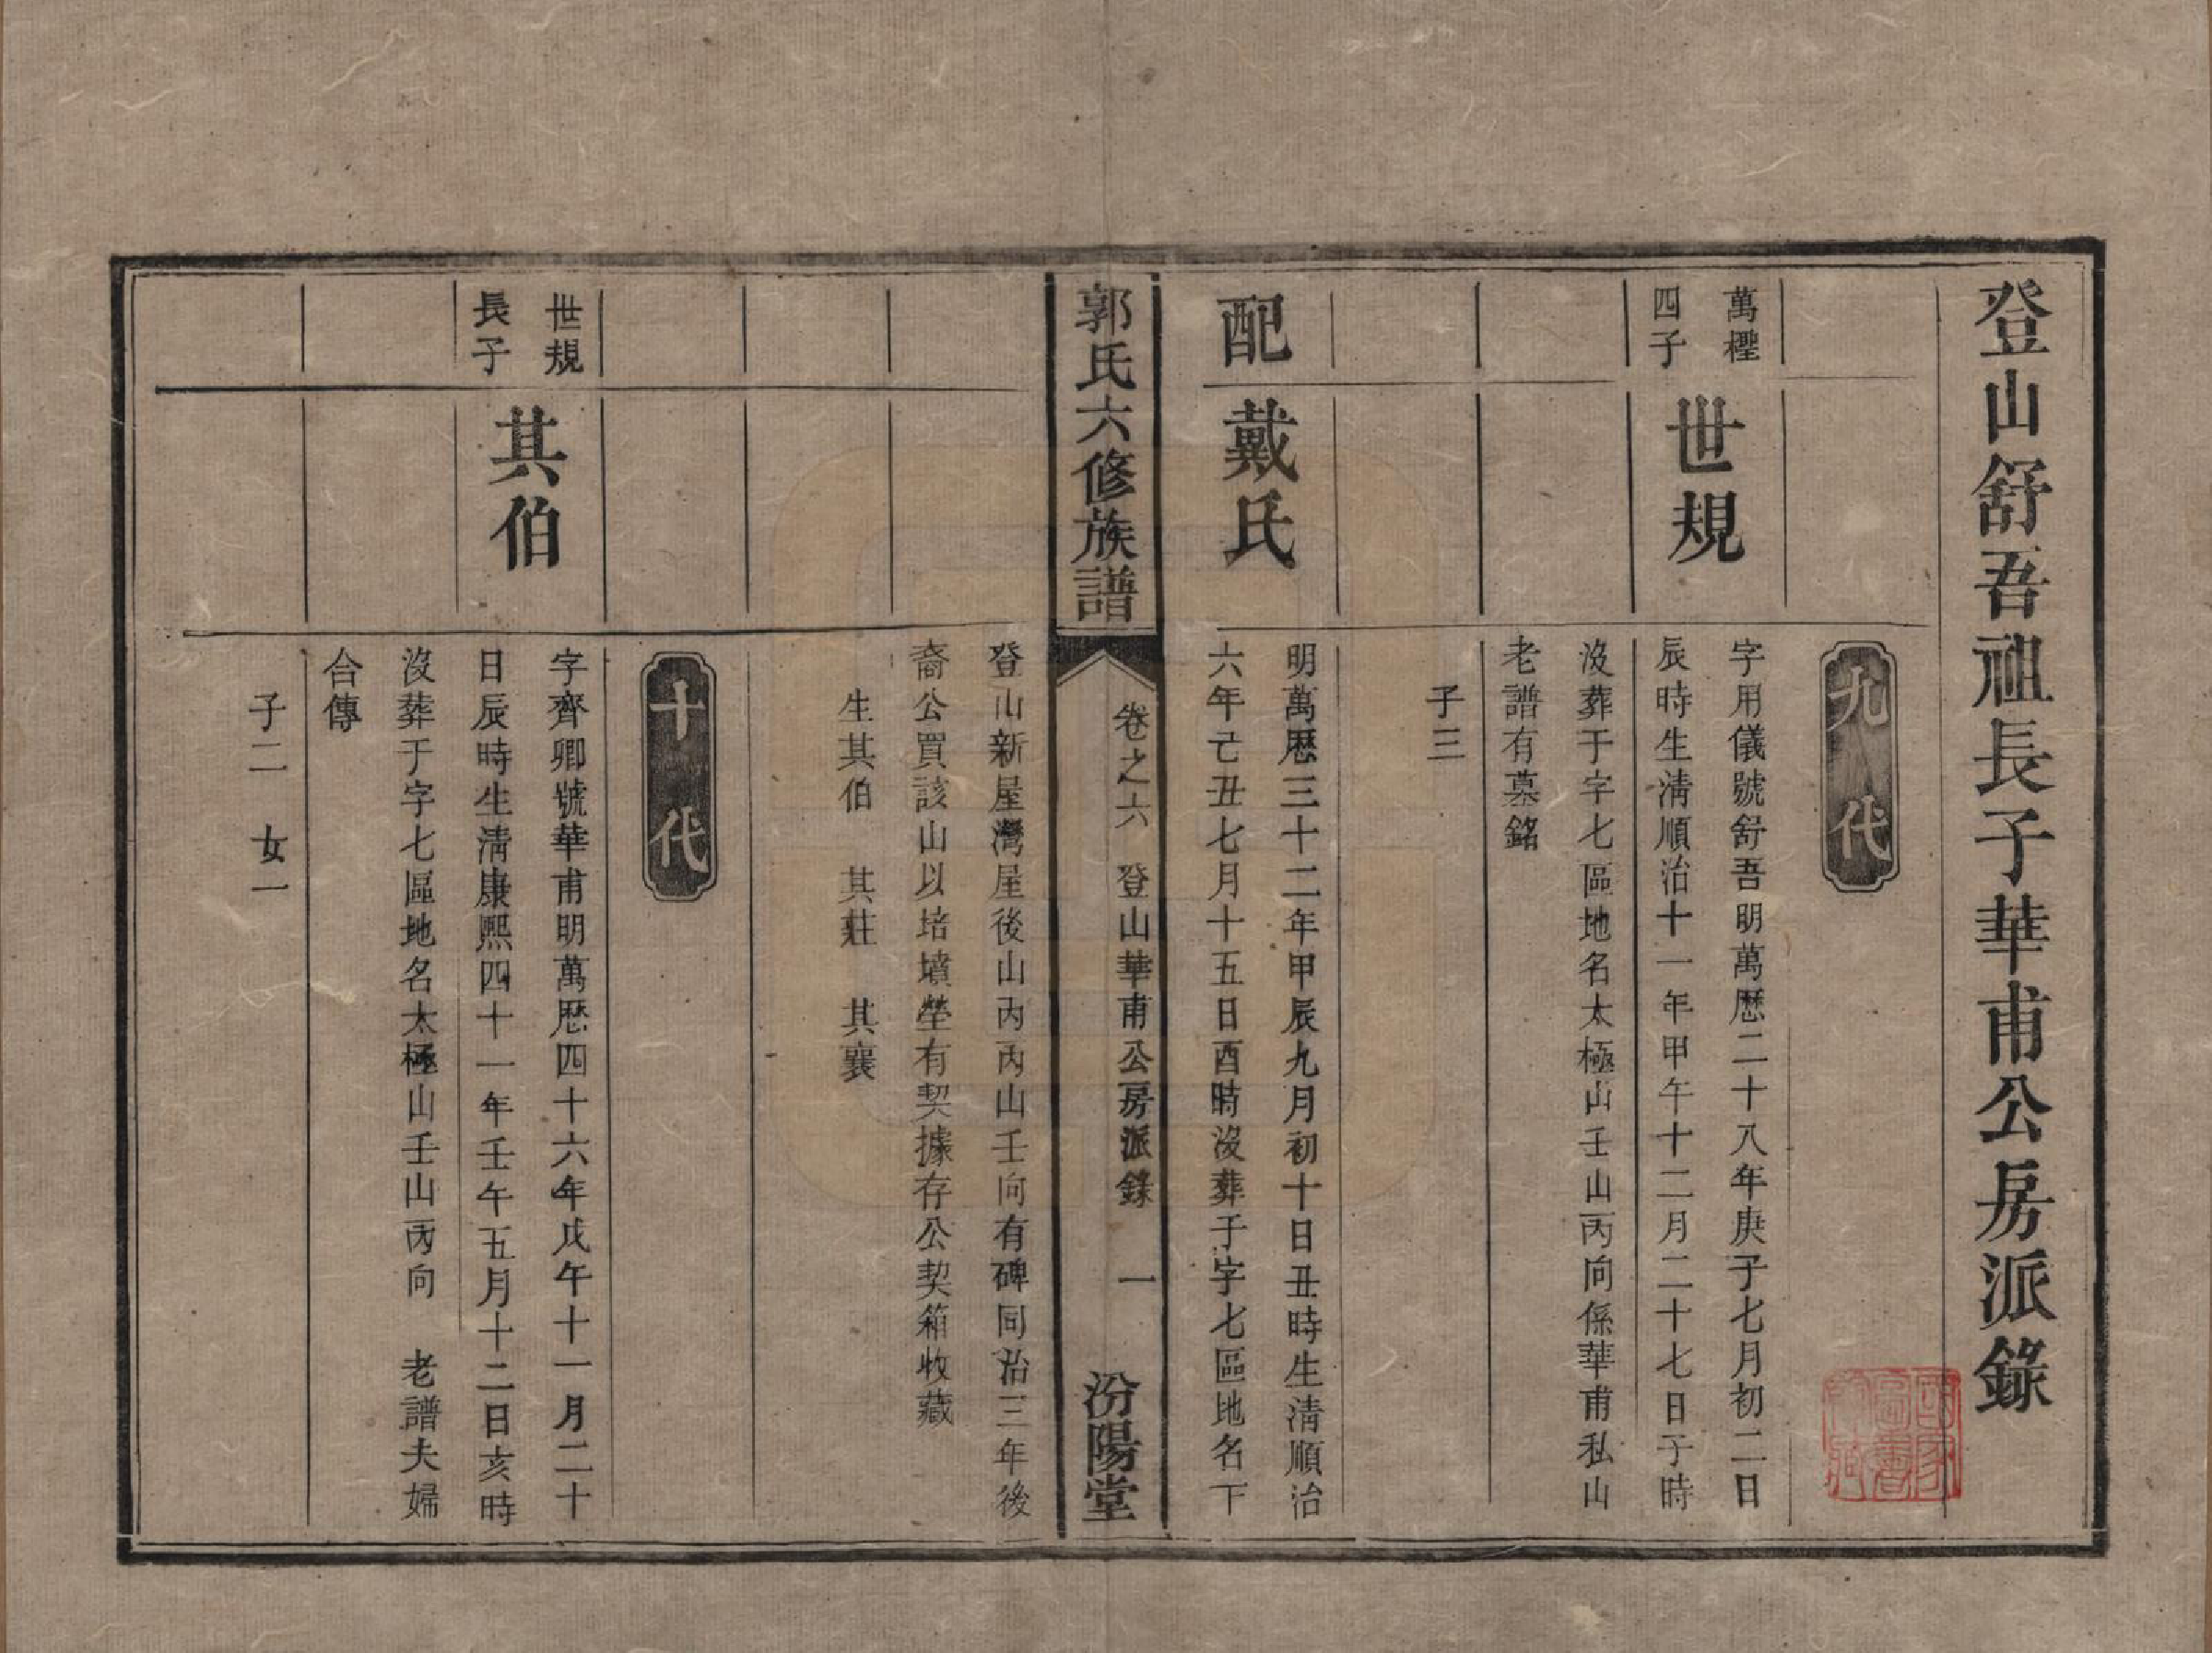 登山舒吾祖長子華甫公房派錄
九代
萬檉
四子
世規
字用儀號舒吾明萬歷二十八年庚子七月初二日
辰時生清順治十一年甲午十二月二十七日子時
沒葬于字七區地名太極山壬山丙向係華甫私山
老譜有墓銘
子三
配
戴氏
明萬歷三十二年甲辰九月初十日丑時生清順治
六年己丑七月十五日酉時沒葬于字七區地名下
郭氏六修族譜
卷之六 登山華甫公房派錄 一
汾陽堂
登山新屋灣屋後山內丙山壬向有碑同治三年後
裔公買該山以培墳塋有契據存公契箱收藏
生其伯 其莊 其襄
十代
世規
長子
其伯
字齊卿號華甫明萬歷四十六年戊午十一月二十
日辰時生清康熙四十一年壬午五月十二日亥時
沒葬于字七區地名太極山壬山丙向 老譜夫婦
合傳
子二 女一